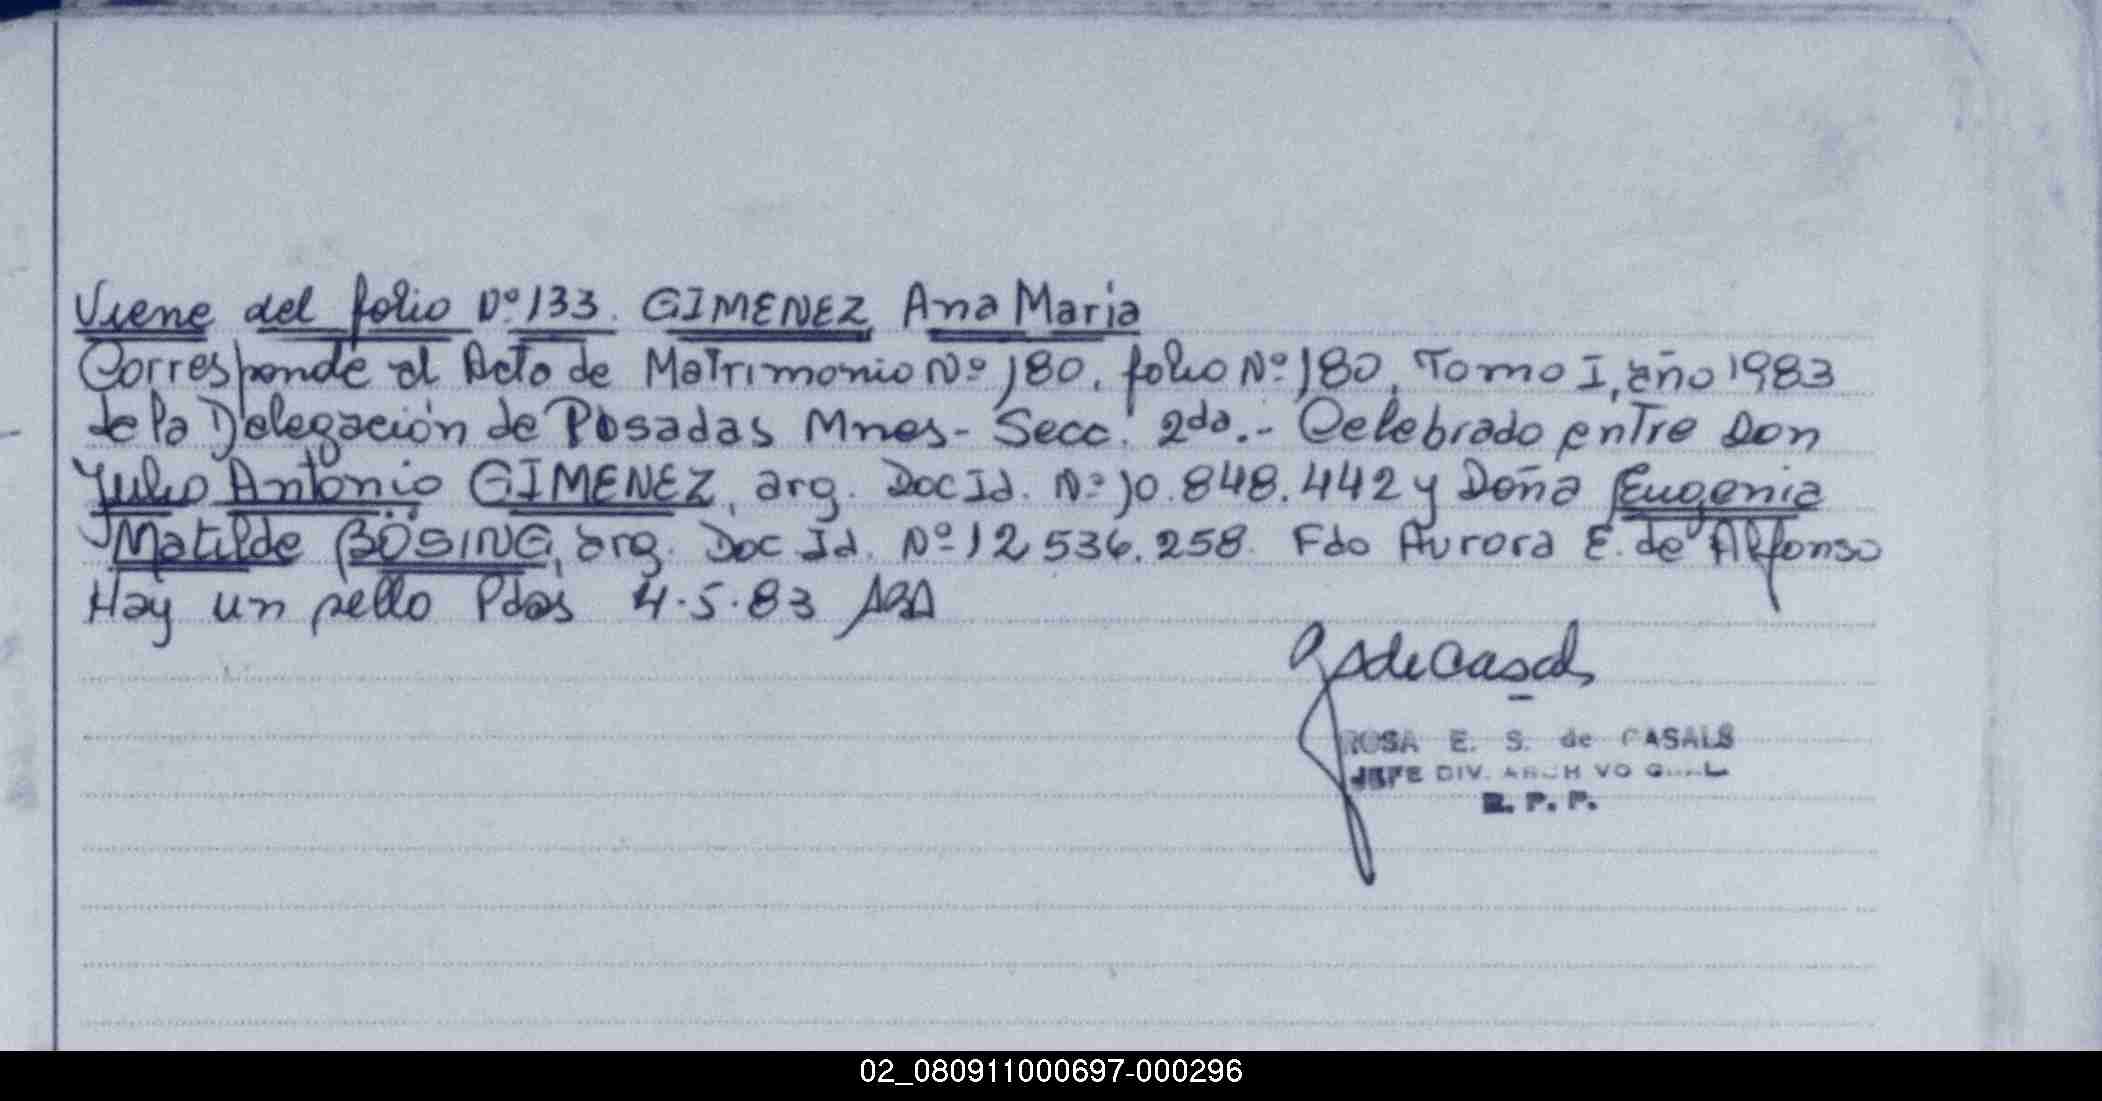 Viene del folio Nº 133. GIMENEZ Ana Maria
Corresponde al Acta de Matrimonio Nº 180, folio Nº 180, Tomo I, año 1983
de la Delegación de Posadas Mnes - Secc. 2da.- Celebrado entre Don
Julio Antonio GIMENEZ, arg. Doc Id. Nº 10.848.442 y Doña Eugenia
Matilde BÖSING, arg. Doc Id. Nº 12 536.258. Fdo Aurora E. de Alfonso
Hay un sello Pdas 4.5.83
ROSA E. S. de CASALS
JEFE DIV. ARCHIVO GRAL
R. P. P.
02_080911000697-000296